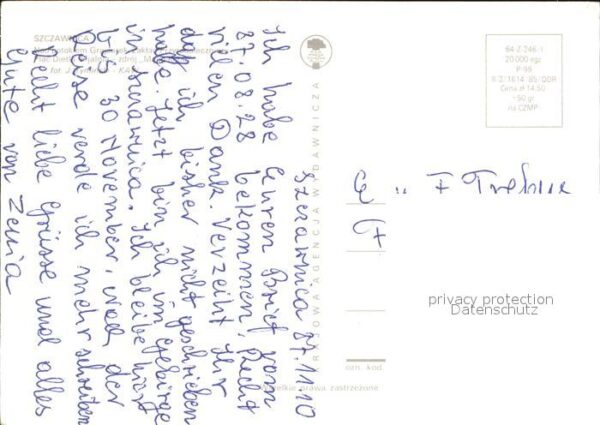 SZCZAWNICA
KRAJOWA AGENCJA WYDAWNICZA
64 Z-246 1
20 000 egz.
P-95
RZ/1614/85/DDR
Cena zł 14.50
+50 gr
na CZMP
ozn. kod.
Wszelkie prawa zastrzeżone
privacy protection
Datenschutz
Szczawnica 87.11.10
Ich habe Euren Brief vom
87.08.28 bekommen, recht
vielen Dank. Verzeiht Ihr
daß ich bisher nicht geschrieben
habe. Jetzt bin ich im Gebirge
in Szczawnica. Ich bleibe hier
bis 30 November, nach der
Reise werde ich mehr schreiben
Recht liebe Grüsse und alles
Gute von Zenia